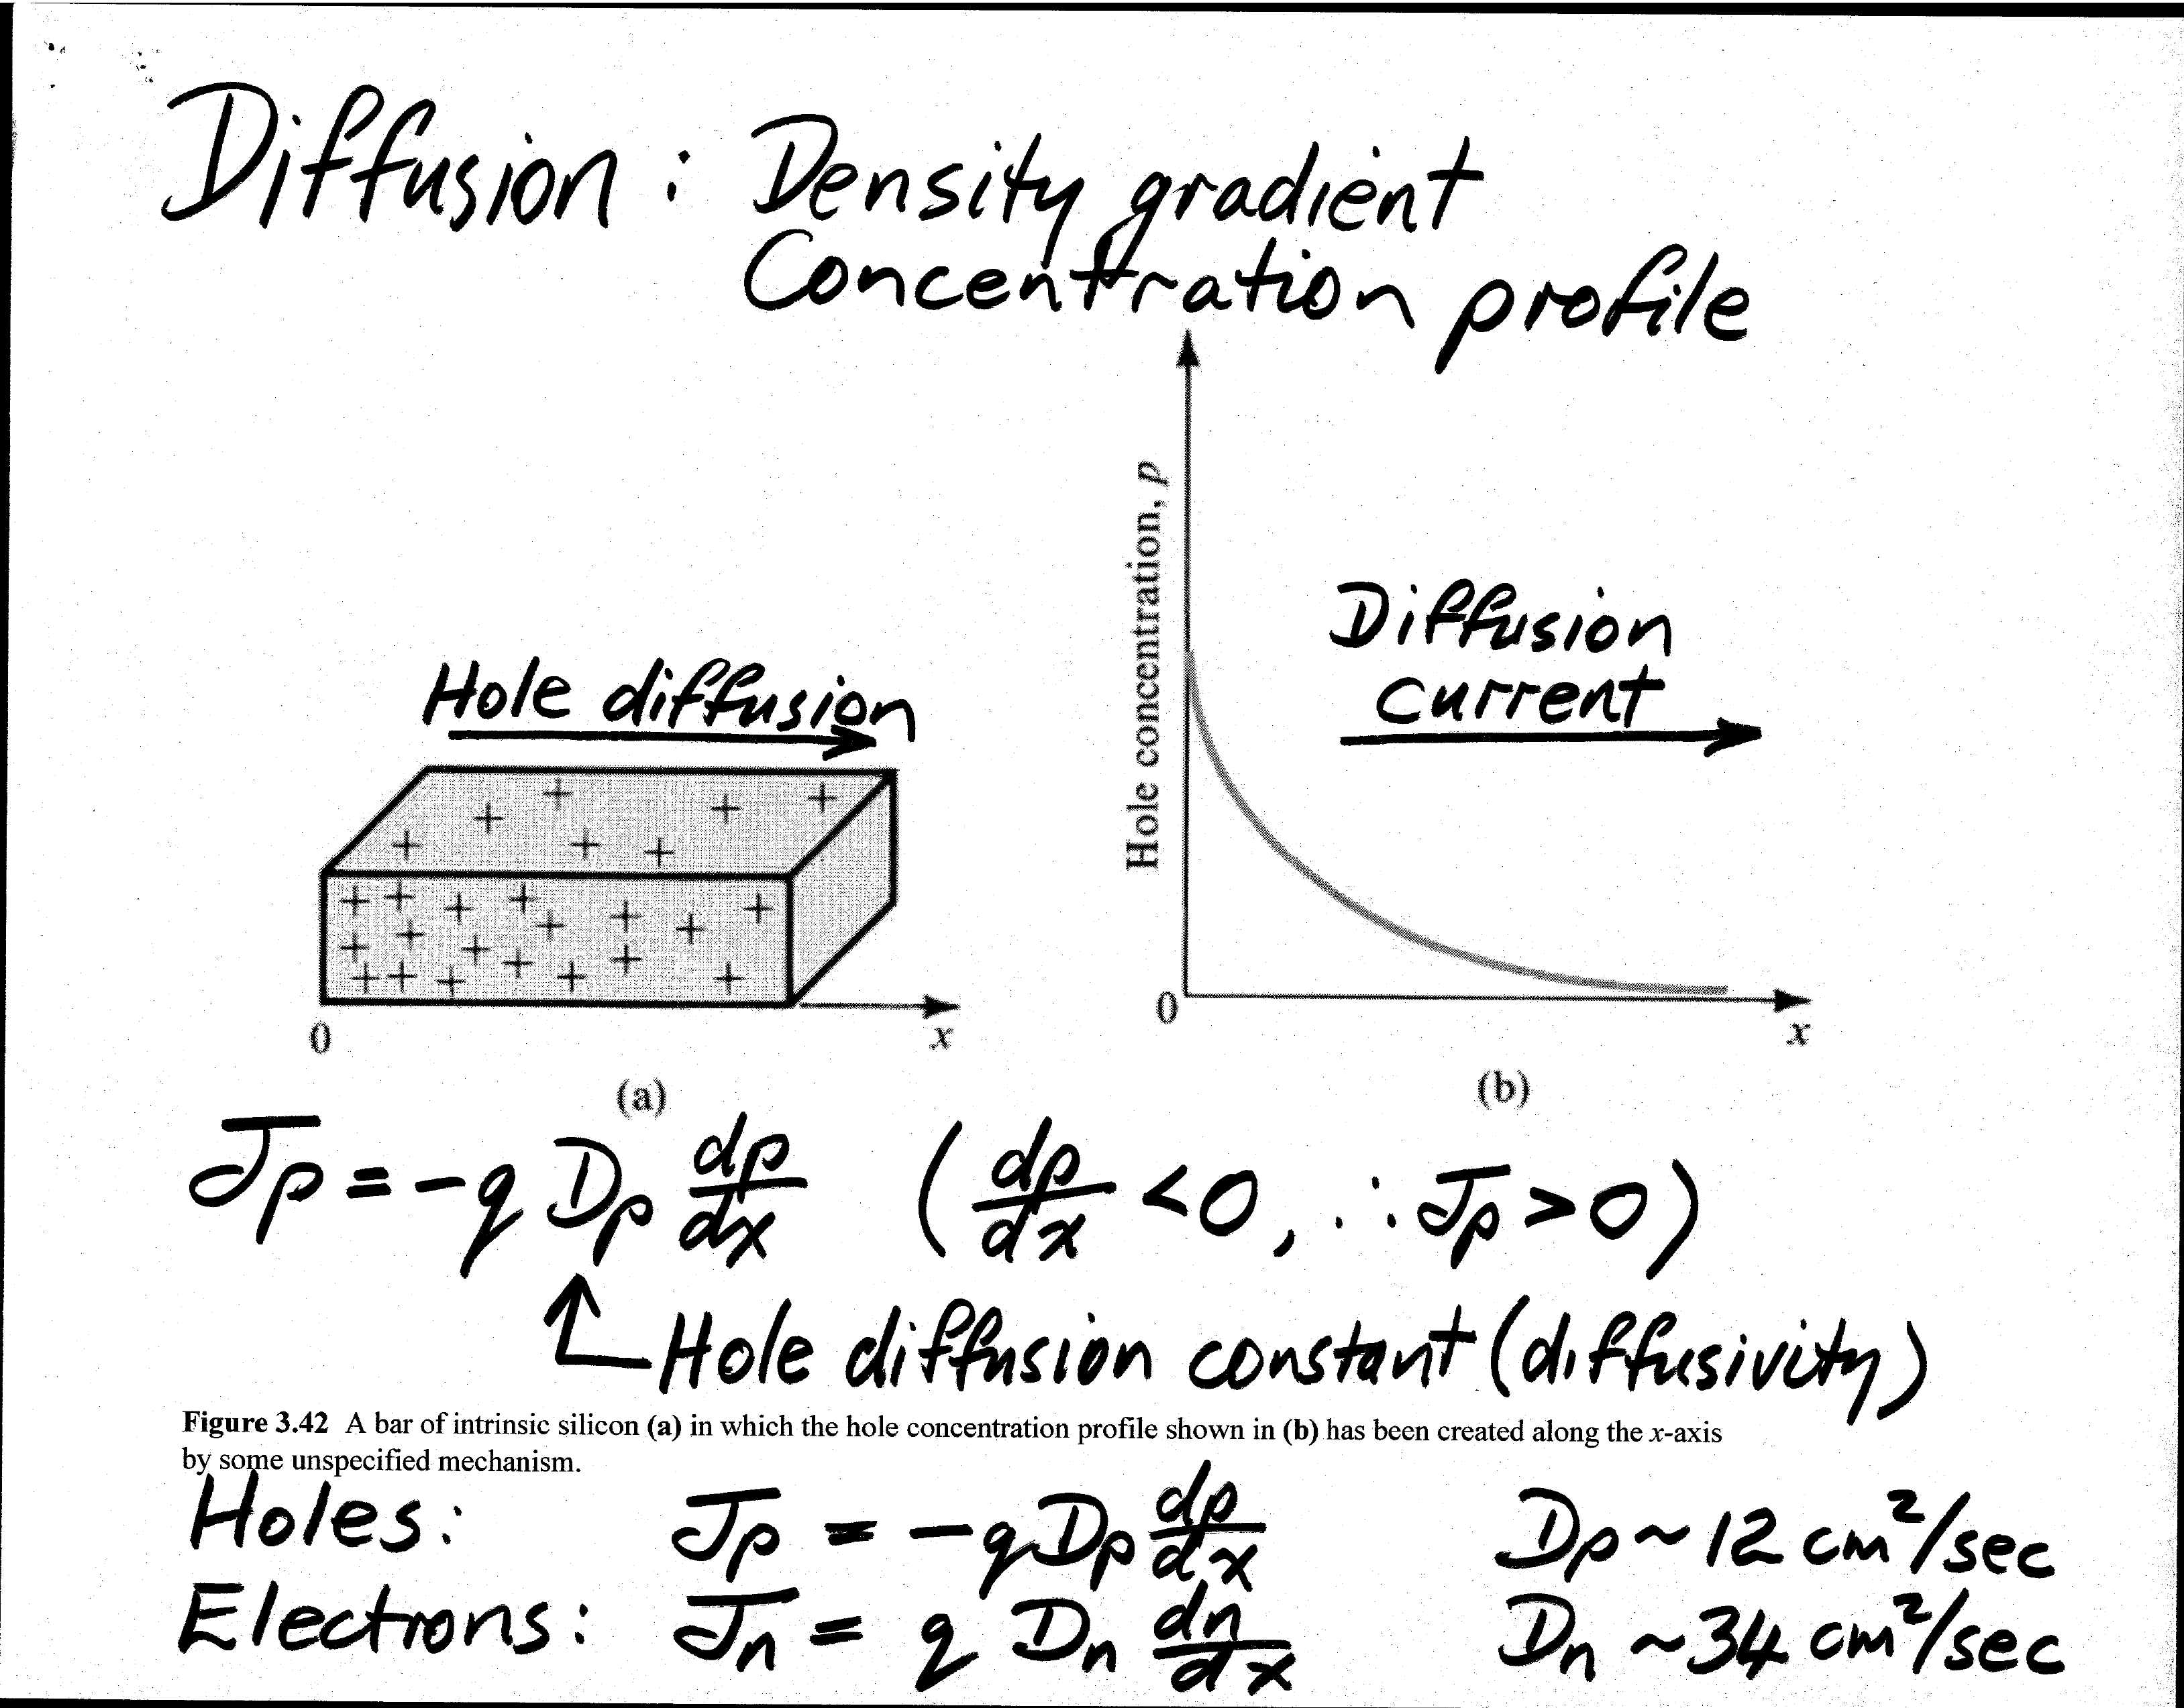 Diffusion : Density gradient
Concentration profile
Hole concentration, p
Diffusion
current
Hole diffusion
0
x
0
x
(a)
(b)
Jp = -q Dp dp/dx (dp/dx <0, ∴ Jp >0)
Hole diffusion constant (diffusivity)
Figure 3.42 A bar of intrinsic silicon (a) in which the hole concentration profile shown in (b) has been created along the x-axis
by some unspecified mechanism.
Holes: Jp = -q Dp dp/dx Dp ~ 12 cm²/sec
Electrons: Jn = q Dn dn/dx Dn ~34 cm²/sec